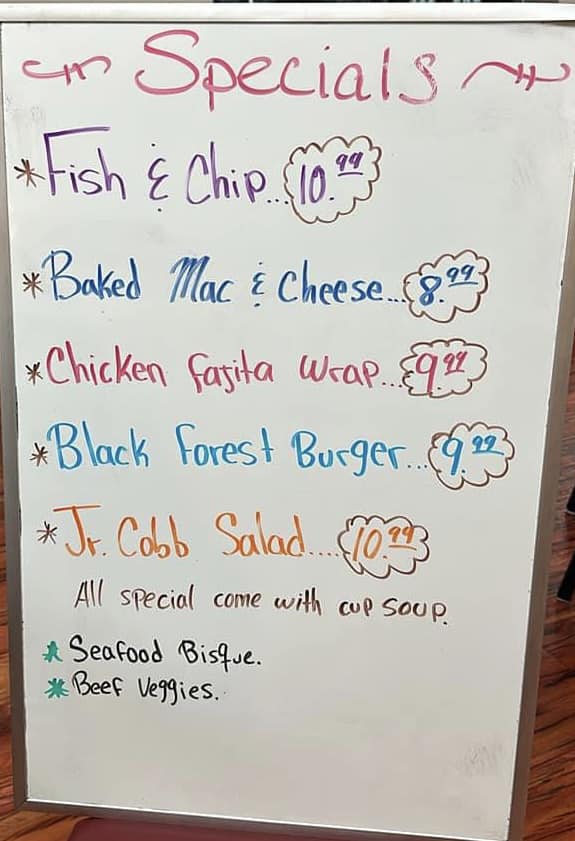 Specials
*Fish & Chip...10.99
*Baked Mac & Cheese...8.99
*Chicken fajita wrap...9.99
*Black Forest Burger...9.99
*Jr. Cobb Salad....10.99
All special come with cup soup.
* Seafood Bisque.
* Beef Veggies.